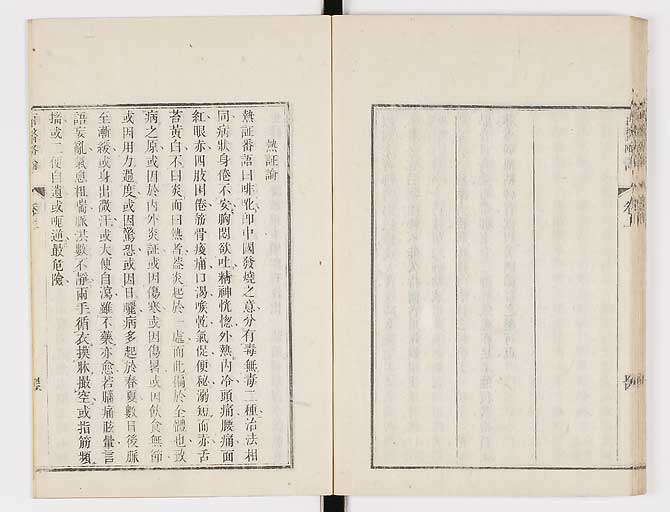 熱証論
熱証番語曰啡𠲖卽中國發燒之意分有毒無毒二種治法相
同病狀身倦不安胸悶欲吐精神恍惚外熱內冷頭痛腰痛面
紅眼赤四肢困倦筋骨痠痛口渴喉乾氣促便秘溺短而赤舌
苔黃白不曰炎而曰熱者葢炎起於一處而此徧於全體也致
病之原或因於內外炎証或因傷寒或因傷暑或因飲食無節
或因用力過度或因驚恐或因日曬病多起於春夏數日後脈
至漸緩或身出微汗或大便自瀉雖不藥亦愈若腦痛眩暈言
語妄亂氣息粗喘脈洪數不靜兩手循衣摸牀撮空或指筋頻
搐或二便自遺或呃逆最危險